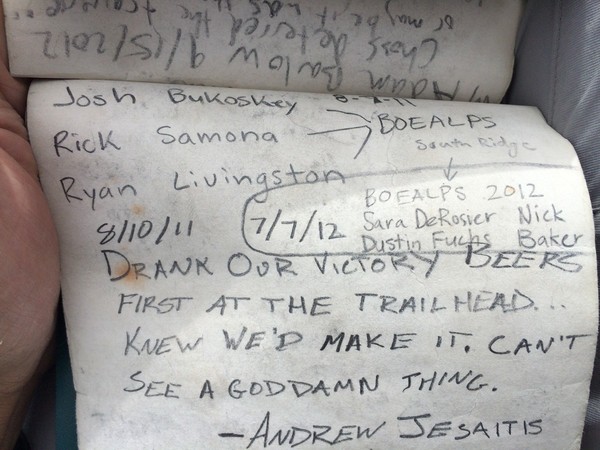 Adam Barlow 9/15/2012
Josh Bukoskey
Rick Samona
BOEALPS
South Ridge
Ryan Livingston
8/10/11
7/7/12
BOEALPS 2012
Sara DeRosier Nick
Dustin Fuchs Baker
DRANK OUR VICTORY BEERS
FIRST AT THE TRAILHEAD...
KNEW WE'D MAKE IT. CAN'T
SEE A GODDAMN THING.
-ANDREW JESAITIS